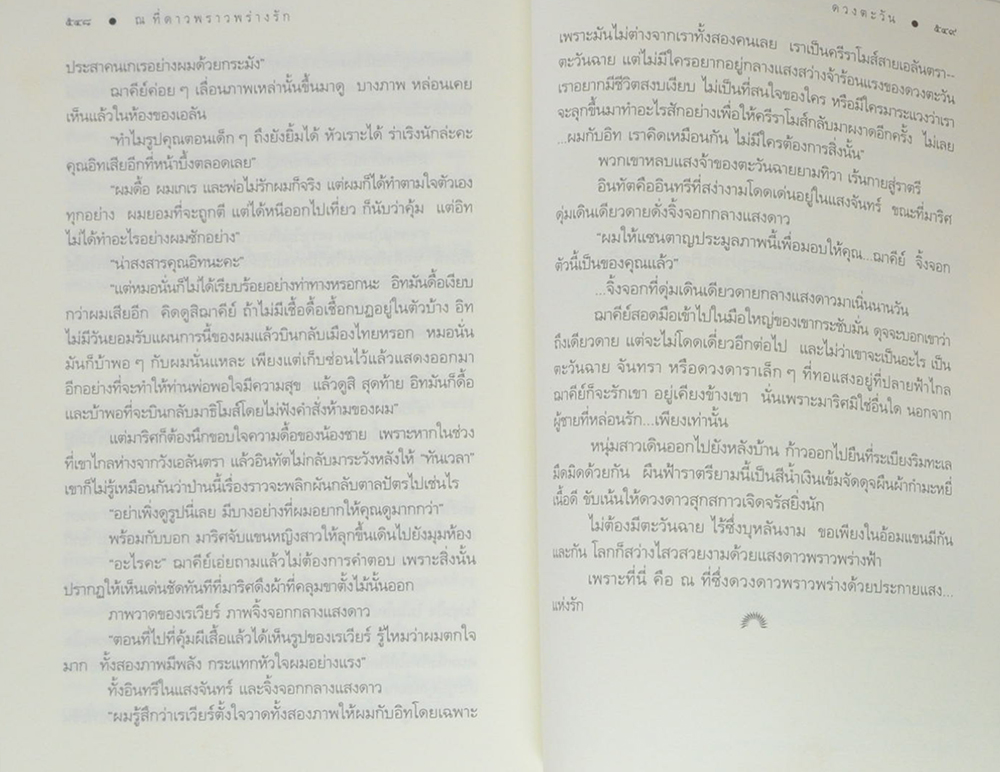 ๕๔๘ ● ณ ที่ดาวพราวพร่างรัก
ประสาคนเกเรอย่างผมด้วยกระมัง"
ฌาคีย์ค่อยๆ เลื่อนภาพเหล่านั้นขึ้นมาดู บางภาพ หล่อนเคย
เห็นแล้วในห้องของเอลัน
"ทำไมรูปคุณตอนเด็กๆ ถึงยังยิ้มได้ หัวเราะได้ ร่าเริงนักล่ะคะ
คุณอิทเสียอีกที่หน้าบึ้งตลอดเลย"
"ผมดื้อ ผมเกเร และพ่อไม่รักผมก็จริง แต่ผมก็ได้ทำตามใจตัวเอง
ทุกอย่าง ผมยอมที่จะถูกตี แต่ได้หนีออกไปเที่ยว ก็นับว่าคุ้ม แต่อิท
ไม่ได้ทำอะไรอย่างผมซักอย่าง"
"น่าสงสารคุณอิทนะคะ"
"แต่หมอนั่นก็ไม่ได้เรียบร้อยอย่างท่าทางหรอกนะ อิทมันดื้อเงียบ
กว่าผมเสียอีก คิดดูสิฌาคีย์ ถ้าไม่มีเชื้อดื้อเชื้อกบฏอยู่ในตัวบ้าง อิท
ไม่มีวันยอมรับแผนการนี้ของผมแล้วบินกลับเมืองไทยหรอก หมอนั่น
มันก็บ้าพอๆ กับผมนั่นแหละ เพียงแต่เก็บซ่อนไว้แล้วแสดงออกมา
อีกอย่างที่จะทำให้ท่านพ่อพอใจมีความสุข แล้วดูสิ สุดท้าย อิทมันก็ดื้อ
และบ้าพอที่จะบินกลับมาธีโมส์โดยไม่ฟังคำสั่งห้ามของผม"
แต่มาริศก็ต้องนึกขอบใจความดื้อของน้องชาย เพราะหากในช่วง
ที่เขาไกลห่างจากวังเอลันตรา แล้วอินทัตไม่กลับมาระวังหลังให้ "ทันเวลา"
เขาก็ไม่รู้เหมือนกันว่าป่านนี้เรื่องราวจะพลิกผันกลับตาลปัตรไปเช่นไร
"อย่าเพิ่งดูรูปนี่เลย มีบางอย่างที่ผมอยากให้คุณดูมากกว่า"
พร้อมกับบอก มาริศจับแขนหญิงสาวให้ลุกขึ้นเดินไปยังมุมห้อง
"อะไรคะ" ฌาคีย์เอ่ยถามแล้วไม่ต้องการคำตอบ เพราะสิ่งนั้น
ปรากฏให้เห็นเด่นชัดทันทีที่มาริศดึงผ้าที่คลุมขาตั้งไม้นั้นออก
ภาพวาดของเรเวียร์ ภาพจิ้งจอกกลางแสงดาว
"ตอนที่ไปที่คุ้มผีเสื้อแล้วได้เห็นรูปของเรเวียร์ รู้ไหมว่าผมตกใจ
มาก ทั้งสองภาพมีพลัง กระแทกหัวใจผมอย่างแรง"
ทั้งอินทรีในแสงจันทร์ และจิ้งจอกกลางแสงดาว
"ผมรู้สึกว่าเรเวียร์ตั้งใจวาดทั้งสองภาพให้ผมกับอิทโดยเฉพาะ
ดวงตะวัน ● ๕๔๙
เพราะมันไม่ต่างจากเราทั้งสองคนเลย เราเป็นครีราโมส์สายเอลันตรา--
ตะวันฉาย แต่ไม่มีใครอยากอยู่กลางแสงสว่างจ้าร้อนแรงของดวงตะวัน
เราอยากมีชีวิตสงบเงียบ ไม่เป็นที่สนใจของใคร หรือมีใครมาระแวงว่าเรา
จะลุกขึ้นมาทำอะไรสักอย่างเพื่อให้ครีราโมส์กลับมาผงาดอีกครั้ง ไม่เลย
...ผมกับอิท เราคิดเหมือนกัน ไม่มีใครต้องการสิ่งนั้น"
พวกเขาหลบแสงจ้าของตะวันฉายยามทิวา เร้นกายสู่ราตรี
อินทัตคืออินทรีที่สง่างามโดดเด่นอยู่ในแสงจันทร์ ขณะที่มาริศ
ดุ่มเดินเดียวดายดั่งจิ้งจอกกลางแสงดาว
"ผมให้แซนตาญประมูลภาพนี้เพื่อมอบให้คุณ...ฌาคีย์ จิ้งจอก
ตัวนี้เป็นของคุณแล้ว"
...จิ้งจอกที่ดุ่มเดินเดียวดายกลางแสงดาวมาเนิ่นนานวัน
ฌาคีย์สอดมือเข้าไปในมือใหญ่ของเขากระชับมั่น ดุจจะบอกเขาว่า
ถึงเดียวดาย แต่จะไม่โดดเดี่ยวอีกต่อไป และไม่ว่าเขาจะเป็นอะไร เป็น
ตะวันฉาย จันทรา หรือดวงดาราเล็กๆ ที่ทอแสงอยู่ที่ปลายฟ้าไกล
ฌาคีย์ก็จะรักเขา อยู่เคียงข้างเขา นั่นเพราะมาริศมิใช่อื่นใด นอกจาก
ผู้ชายที่หล่อนรัก...เพียงเท่านั้น
หนุ่มสาวเดินออกไปยังหลังบ้าน ก้าวออกไปยืนที่ระเบียงริมทะเล
มืดมิดด้วยกัน ผืนฟ้าราตรียามนี้เป็นสีน้ำเงินเข้มจัดดุจผืนผ้ากำมะหยี่
เนื้อดี ขับเน้นให้ดวงดาวสุกสกาวเจิดจรัสยิ่งนัก
ไม่ต้องมีตะวันฉาย ไร้ซึ่งบุหลันงาม ขอเพียงในอ้อมแขนมีกัน
และกัน โลกก็สว่างไสวสวยงามด้วยแสงดาวพราวพร่างฟ้า
เพราะที่นี่ คือ ณ ที่ซึ่งดวงดาวพราวพร่างด้วยประกายแสง...
แห่งรัก